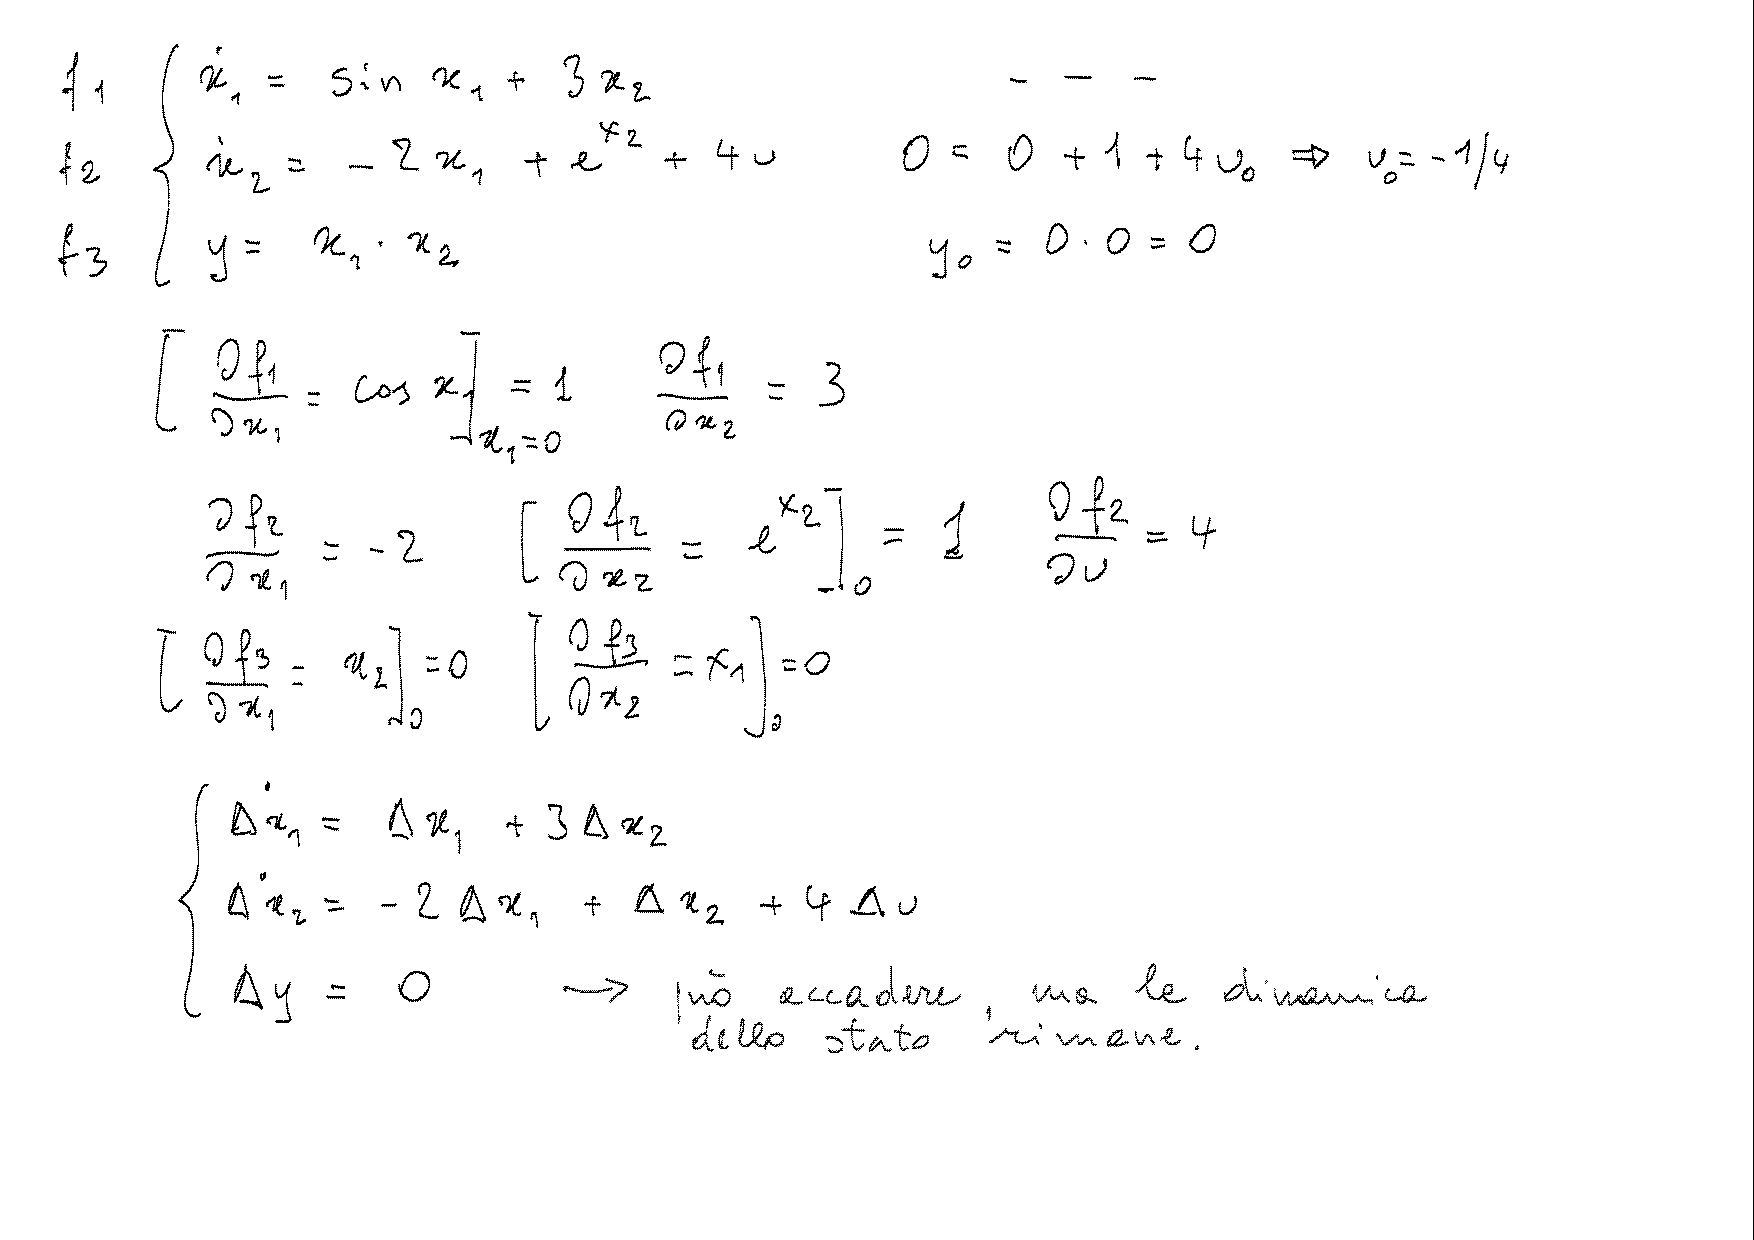 f1 { ẋ₁ = sin x₁ + 3x₂ - - -
f2 ẋ₂ = -2x₁ + e^x₂ + 4u 0 = 0 + 1 + 4u₀ ⇒ u₀ = -1/4
f3 y = x₁ · x₂ y₀ = 0 · 0 = 0
[∂f₁/∂x₁ = cos x₁]x₁=0 = 1 ∂f₁/∂x₂ = 3
∂f₂/∂x₁ = -2 [∂f₂/∂x₂ = e^x₂]₀ = 1 ∂f₂/∂u = 4
[∂f₃/∂x₁ = x₂]₀ = 0 [∂f₃/∂x₂ = x₁]₀ = 0
{ Δẋ₁ = Δx₁ + 3Δx₂
Δẋ₂ = -2Δx₁ + Δx₂ + 4Δu
Δy = 0 → può accadere, ma la dinamica
dello stato rimane.